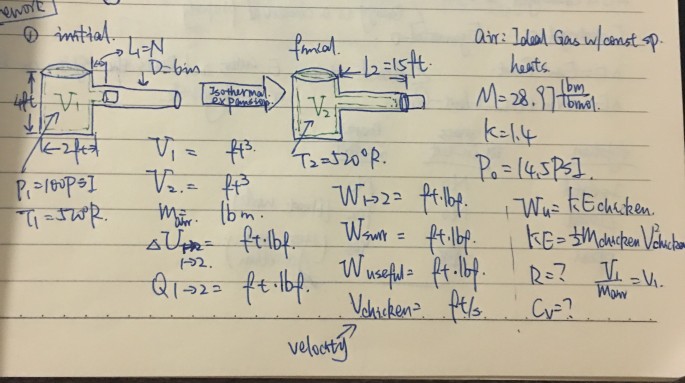 ework
① initial.
L₁=N
D=6in
4ft
V₁
2ft
P₁=100PSI
T₁=520°R.
Isothermal expansion
final.
L₂=15ft.
V₂
T₂=520°R.
air: Ideal Gas w/const sp. heats.
M=28.97 lbm/lbmol.
k=1.4
P₀=14.5PSI.
V₁ = ft³.
V₂ = ft³
mair = lbm.
ΔU1→2 = ft·lbf.
Q1→2 = ft·lbf.
W1→2 = ft·lbf.
Wsurr = ft·lbf.
Wuseful = ft·lbf.
Vchicken = ft/s.
velocity
Wu = KEchicken.
KE = ½MchickenV²chicken
R=? V₁/mair = v₁.
Cv=?